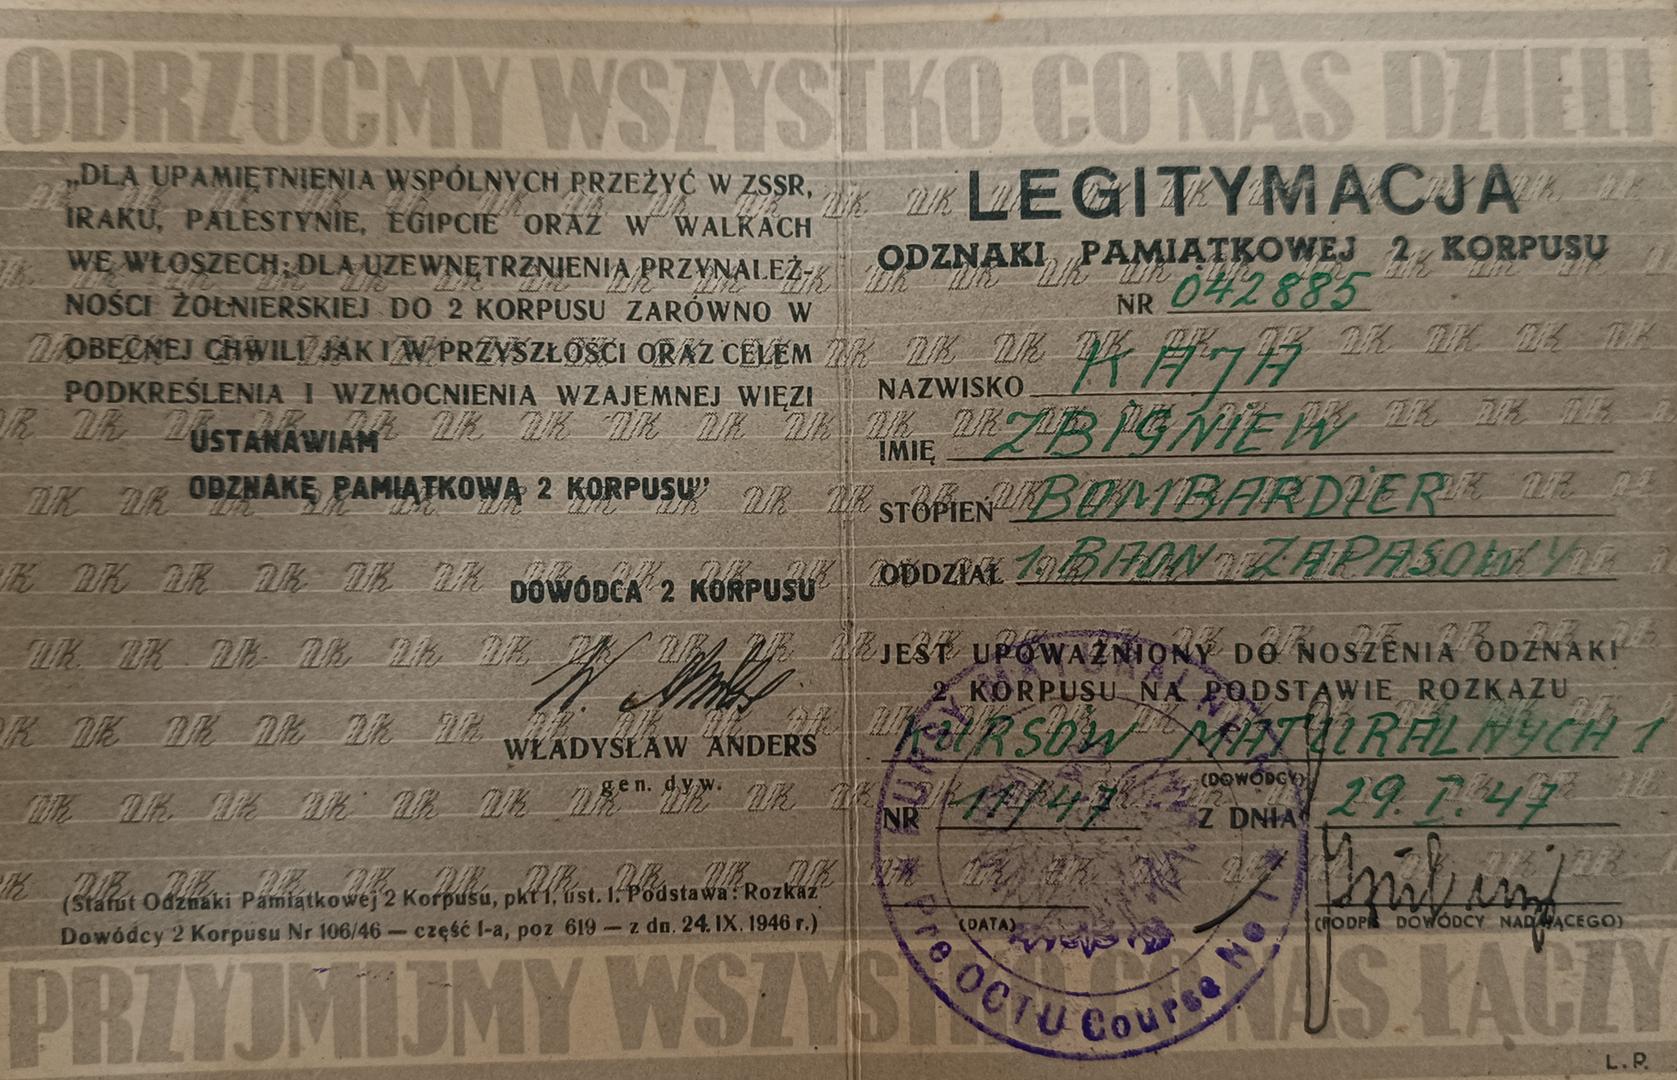 ODRZUĆMY WSZYSTKO CO NAS DZIELI
„DLA UPAMIĘTNIENIA WSPÓLNYCH PRZEŻYĆ W ZSSR,
IRAKU, PALESTYNIE, EGIPCIE ORAZ W WALKACH
WE WŁOSZECH; DLA UZEWNĘTRZNIENIA PRZYNALEŻ-
NOŚCI ŻOŁNIERSKIEJ DO 2 KORPUSU ZARÓWNO W
OBECNEJ CHWILI JAK I W PRZYSZŁOŚCI ORAZ CELEM
PODKREŚLENIA I WZMOCNIENIA WZAJEMNEJ WIĘZI
USTANAWIAM
ODZNAKĘ PAMIĄTKOWĄ 2 KORPUSU”
DOWÓDCA 2 KORPUSU
W. Anders
WŁADYSŁAW ANDERS
gen. dyw.
(Statut Odznaki Pamiątkowej 2 Korpusu, pkt 1, ust. 1. Podstawa: Rozkaz
Dowódcy 2 Korpusu Nr 106/46 — część I-a, poz 619 — z dn. 24. IX. 1946 r.)
LEGITYMACJA
ODZNAKI PAMIĄTKOWEJ 2 KORPUSU
NR 042885
NAZWISKO KAJA
IMIĘ ZBIGNIEW
STOPIEŃ BOMBARDIER
ODDZIAŁ 1. BAON ZAPASOWY
JEST UPOWAŻNIONY DO NOSZENIA ODZNAKI
2 KORPUSU NA PODSTAWIE ROZKAZU
KURSÓW MATURALNYCH 1
(DOWÓDCY)
NR 11/47 Z DNIA 29. I. 47
(DATA)
(PODPIS DOWÓDCY NADAJĄCEGO)
KURSY MATURALNE
Pre OCTU Course No 1
PRZYJMIJMY WSZYSTKO CO NAS ŁĄCZY
L. P.